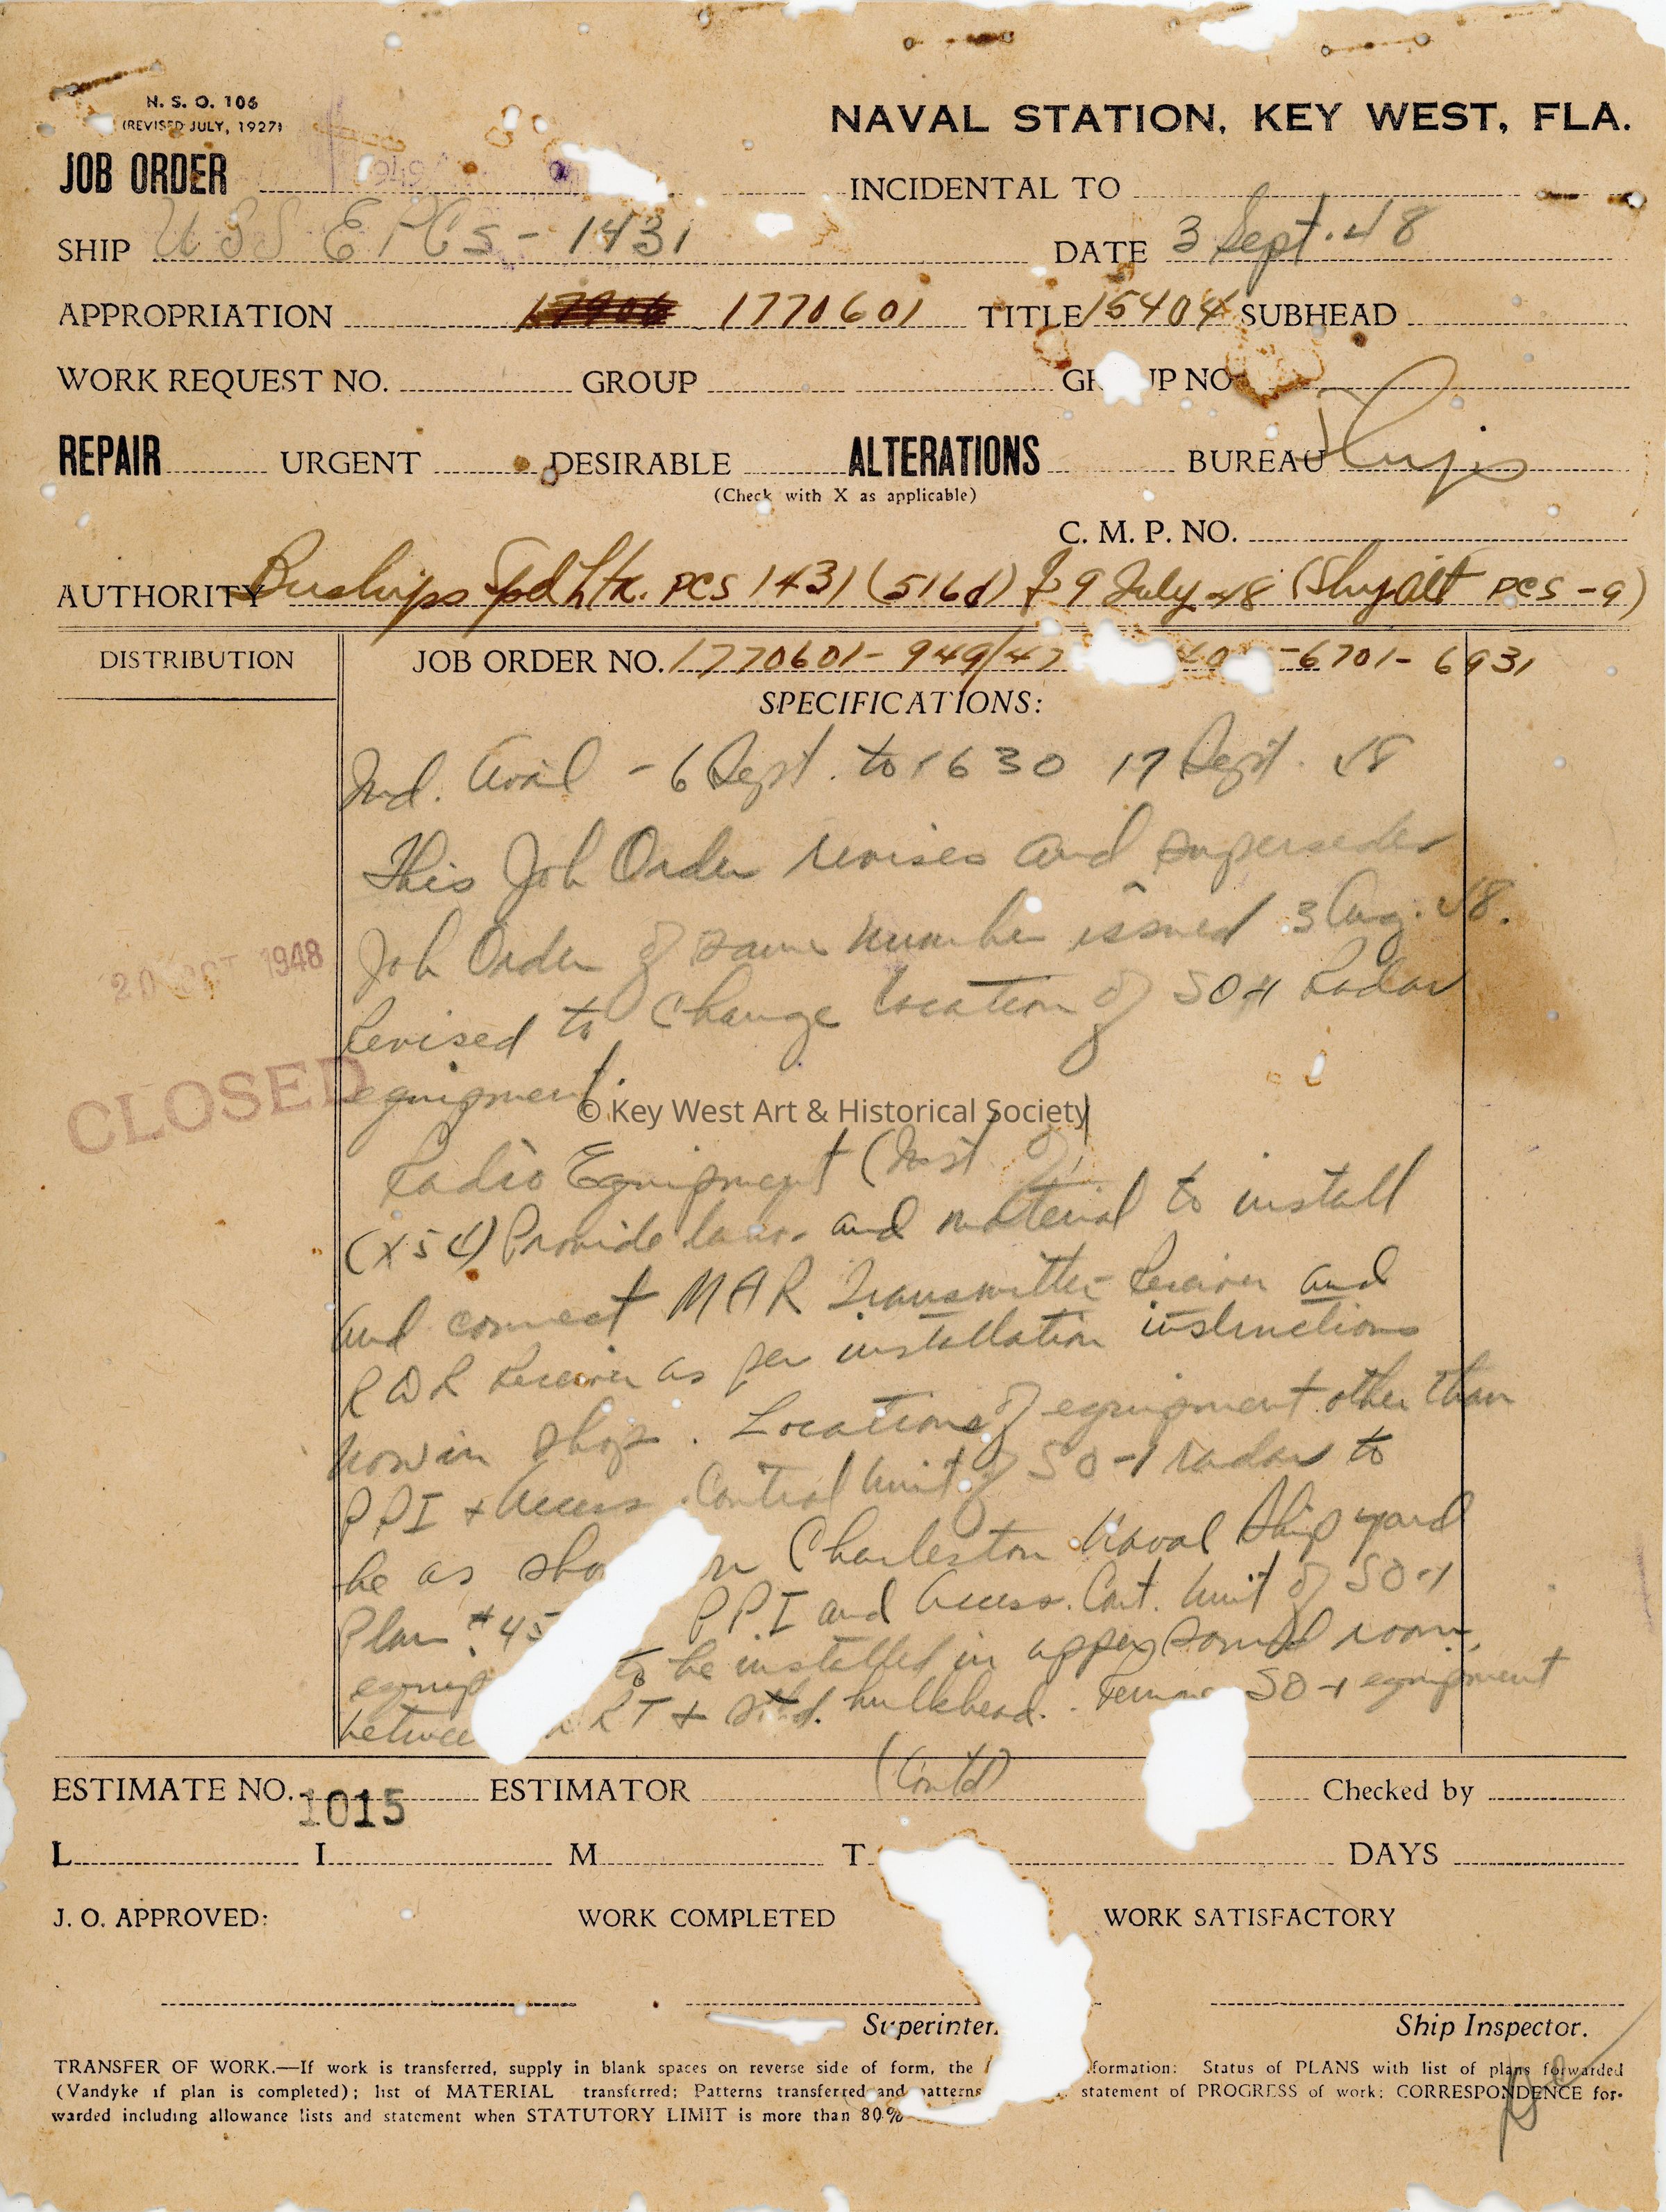 N. S. O. 106
(REVISED JULY, 1927)
NAVAL STATION, KEY WEST, FLA.
JOB ORDER
INCIDENTAL TO
SHIP USS EPCS - 1431
DATE 3 Sept. 48
APPROPRIATION 1770601 TITLE 15404 SUBHEAD
WORK REQUEST NO. GROUP GR UP NO
REPAIR URGENT DESIRABLE ALTERATIONS BUREAU Ships
(Check with X as applicable)
C. M. P. NO.
AUTHORITY Buships Spd Ltr. PCS 1431 (516d) of 9 July 48 (Shipalt PCS - 9)
DISTRIBUTION
JOB ORDER NO. 1770601 - 949/47 -6701- 6931
SPECIFICATIONS:
Ind. Avail - 6 Sept. to 1630 17 Sept. 48
This Job Order revises and supersedes
Job Order of same number issued 3 Aug. 48.
Revised to change location of SO-1 Radar
equipment.
20 OCT 1948
CLOSED
© Key West Art & Historical Society
Radio Equipment (Inst of)
(X54) Provide labor and material to install
and connect MAR Transmitter-Receiver and
RDR Receiver as per installation instructions
now in shop. Locations of equipment other than
PPI + Access. Control Unit of SO-1 radar to
be as sho n Charleston Naval Ship yard
Plan #45 PPI and Access. Cont. Unit of SO-1
equip to be installed in upper sound room
betwee RT + Stbd. bulkhead. Remove SO-1 equipment
(Cont'd)
ESTIMATE NO. 1015 ESTIMATOR Checked by
L I M T DAYS
J. O. APPROVED: WORK COMPLETED WORK SATISFACTORY
Superinten Ship Inspector.
TRANSFER OF WORK.—If work is transferred, supply in blank spaces on reverse side of form, the formation: Status of PLANS with list of plans forwarded
(Vandyke if plan is completed); list of MATERIAL transferred; Patterns transferred and patterns statement of PROGRESS of work; CORRESPONDENCE for-
warded including allowance lists and statement when STATUTORY LIMIT is more than 80%